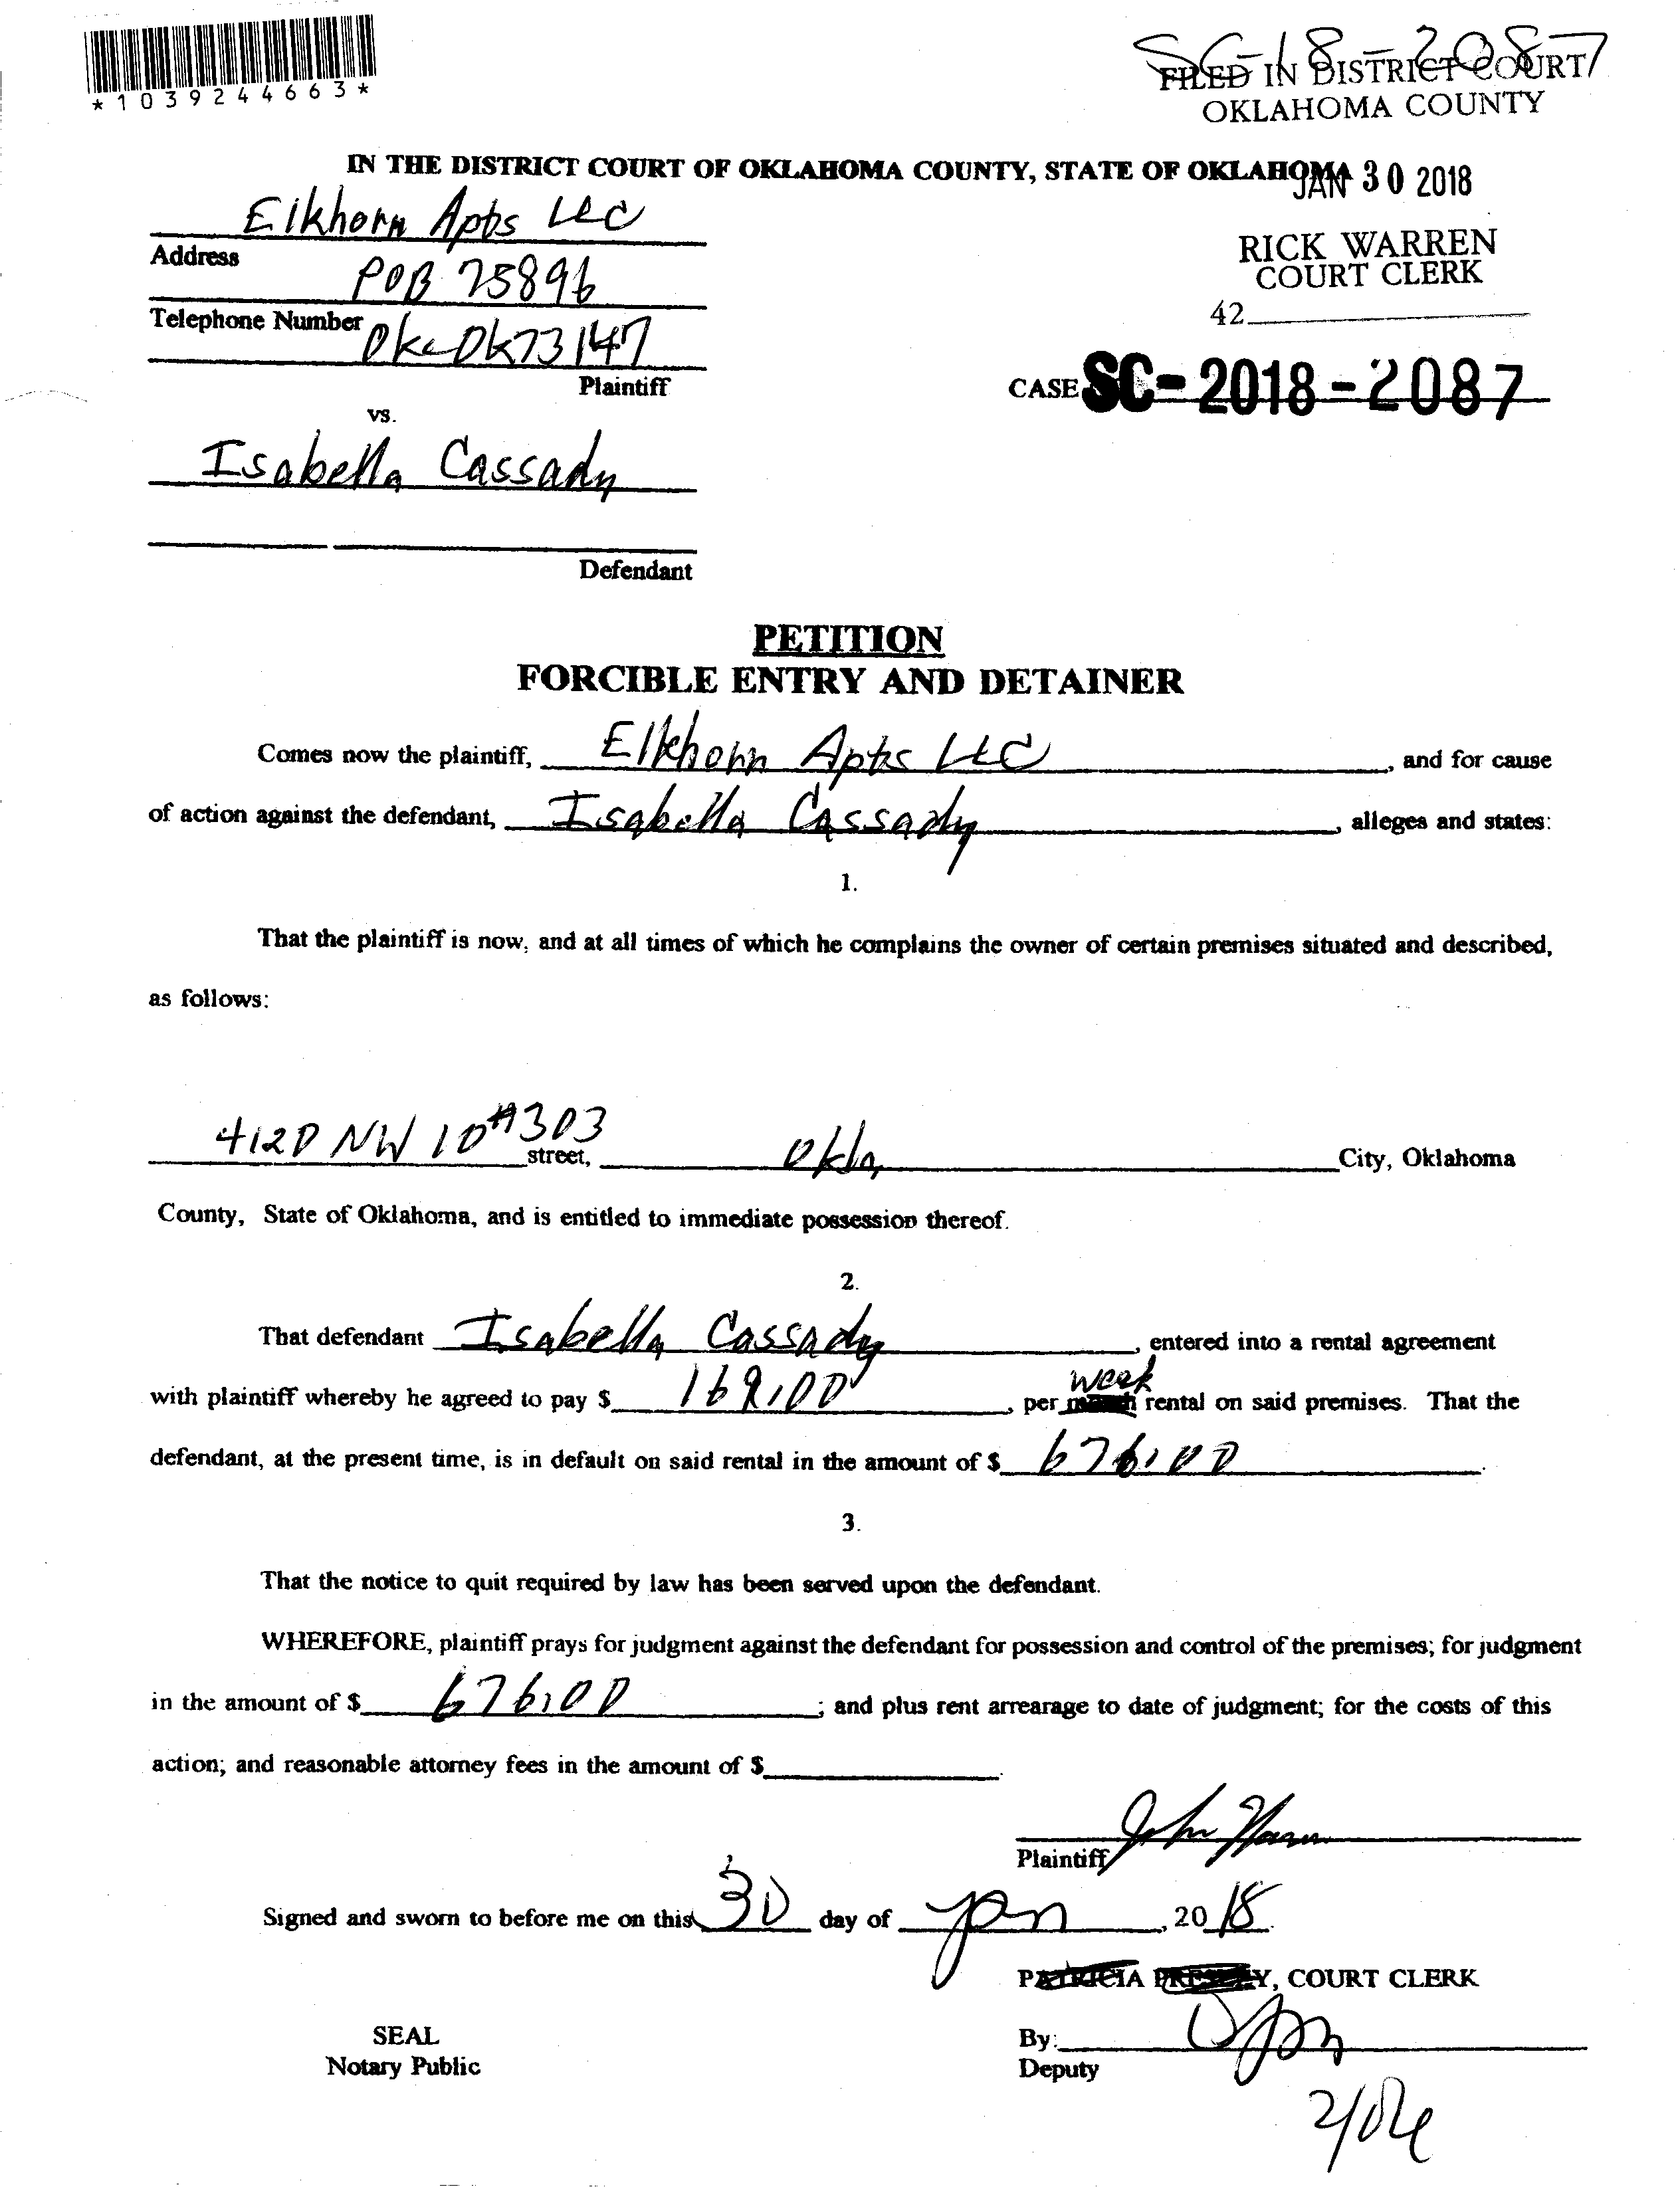 *1039244663*
SC-18-2087
FILED IN DISTRICT COURT
OKLAHOMA COUNTY
IN THE DISTRICT COURT OF OKLAHOMA COUNTY, STATE OF OKLAHOMA
JAN 30 2018
Elkhorn Apts LLC
RICK WARREN
COURT CLERK
Address
POB 75896
42
Telephone Number
Okc Ok 73147
Plaintiff
CASE SC-2018-2087
vs.
Isabella Cassady
Defendant
PETITION
FORCIBLE ENTRY AND DETAINER
Comes now the plaintiff, Elkhorn Apts LLC, and for cause
of action against the defendant, Isabella Cassady, alleges and states:
1.
That the plaintiff is now, and at all times of which he complains the owner of certain premises situated and described,
as follows:
4120 NW 10 #303 street, Okla City, Oklahoma
County, State of Oklahoma, and is entitled to immediate possession thereof.
2.
That defendant Isabella Cassady, entered into a rental agreement
with plaintiff whereby he agreed to pay $ 169.00, per week rental on said premises. That the
defendant, at the present time, is in default on said rental in the amount of $ 676.00.
3.
That the notice to quit required by law has been served upon the defendant.
WHEREFORE, plaintiff prays for judgment against the defendant for possession and control of the premises; for judgment
in the amount of $ 676.00; and plus rent arrearage to date of judgment; for the costs of this
action; and reasonable attorney fees in the amount of $.
John
Plaintiff
Signed and sworn to before me on this 30 day of Jan, 2018.
PATRICIA PRESLEY, COURT CLERK
SEAL
By:
Notary Public
Deputy